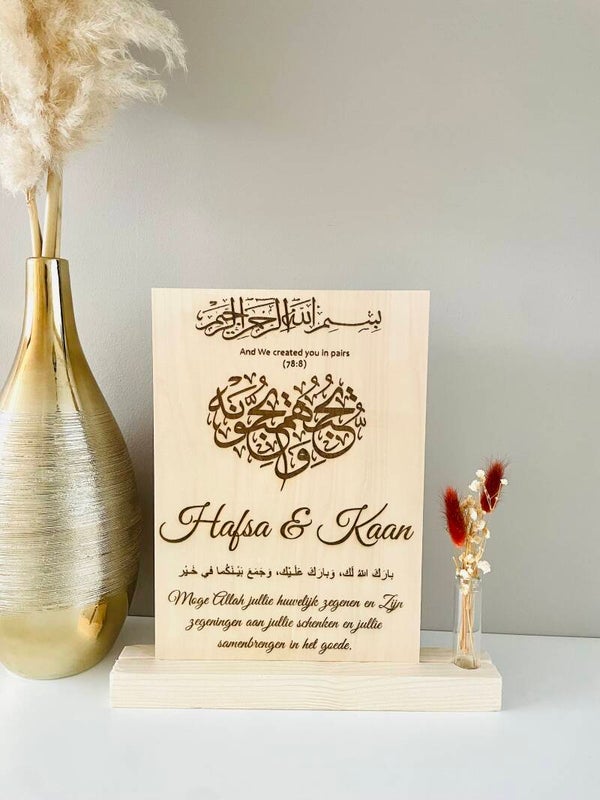 بِسْمِ اللهِ الرَّحْمٰنِ الرَّحِيْمِ
And We created you in pairs
(78:8)
يُحِبُّهُمْ وَيُحِبُّونَهُ
Hafsa & Kaan
بارَكَ اللهُ لَك، وَبارَكَ عَلَـيْك، وَجَمَعَ بَيْـنَكُما في خَـيْر
Moge Allah jullie huwelijk zegenen en Zijn
zegeningen aan jullie schenken en jullie
samenbrengen in het goede.